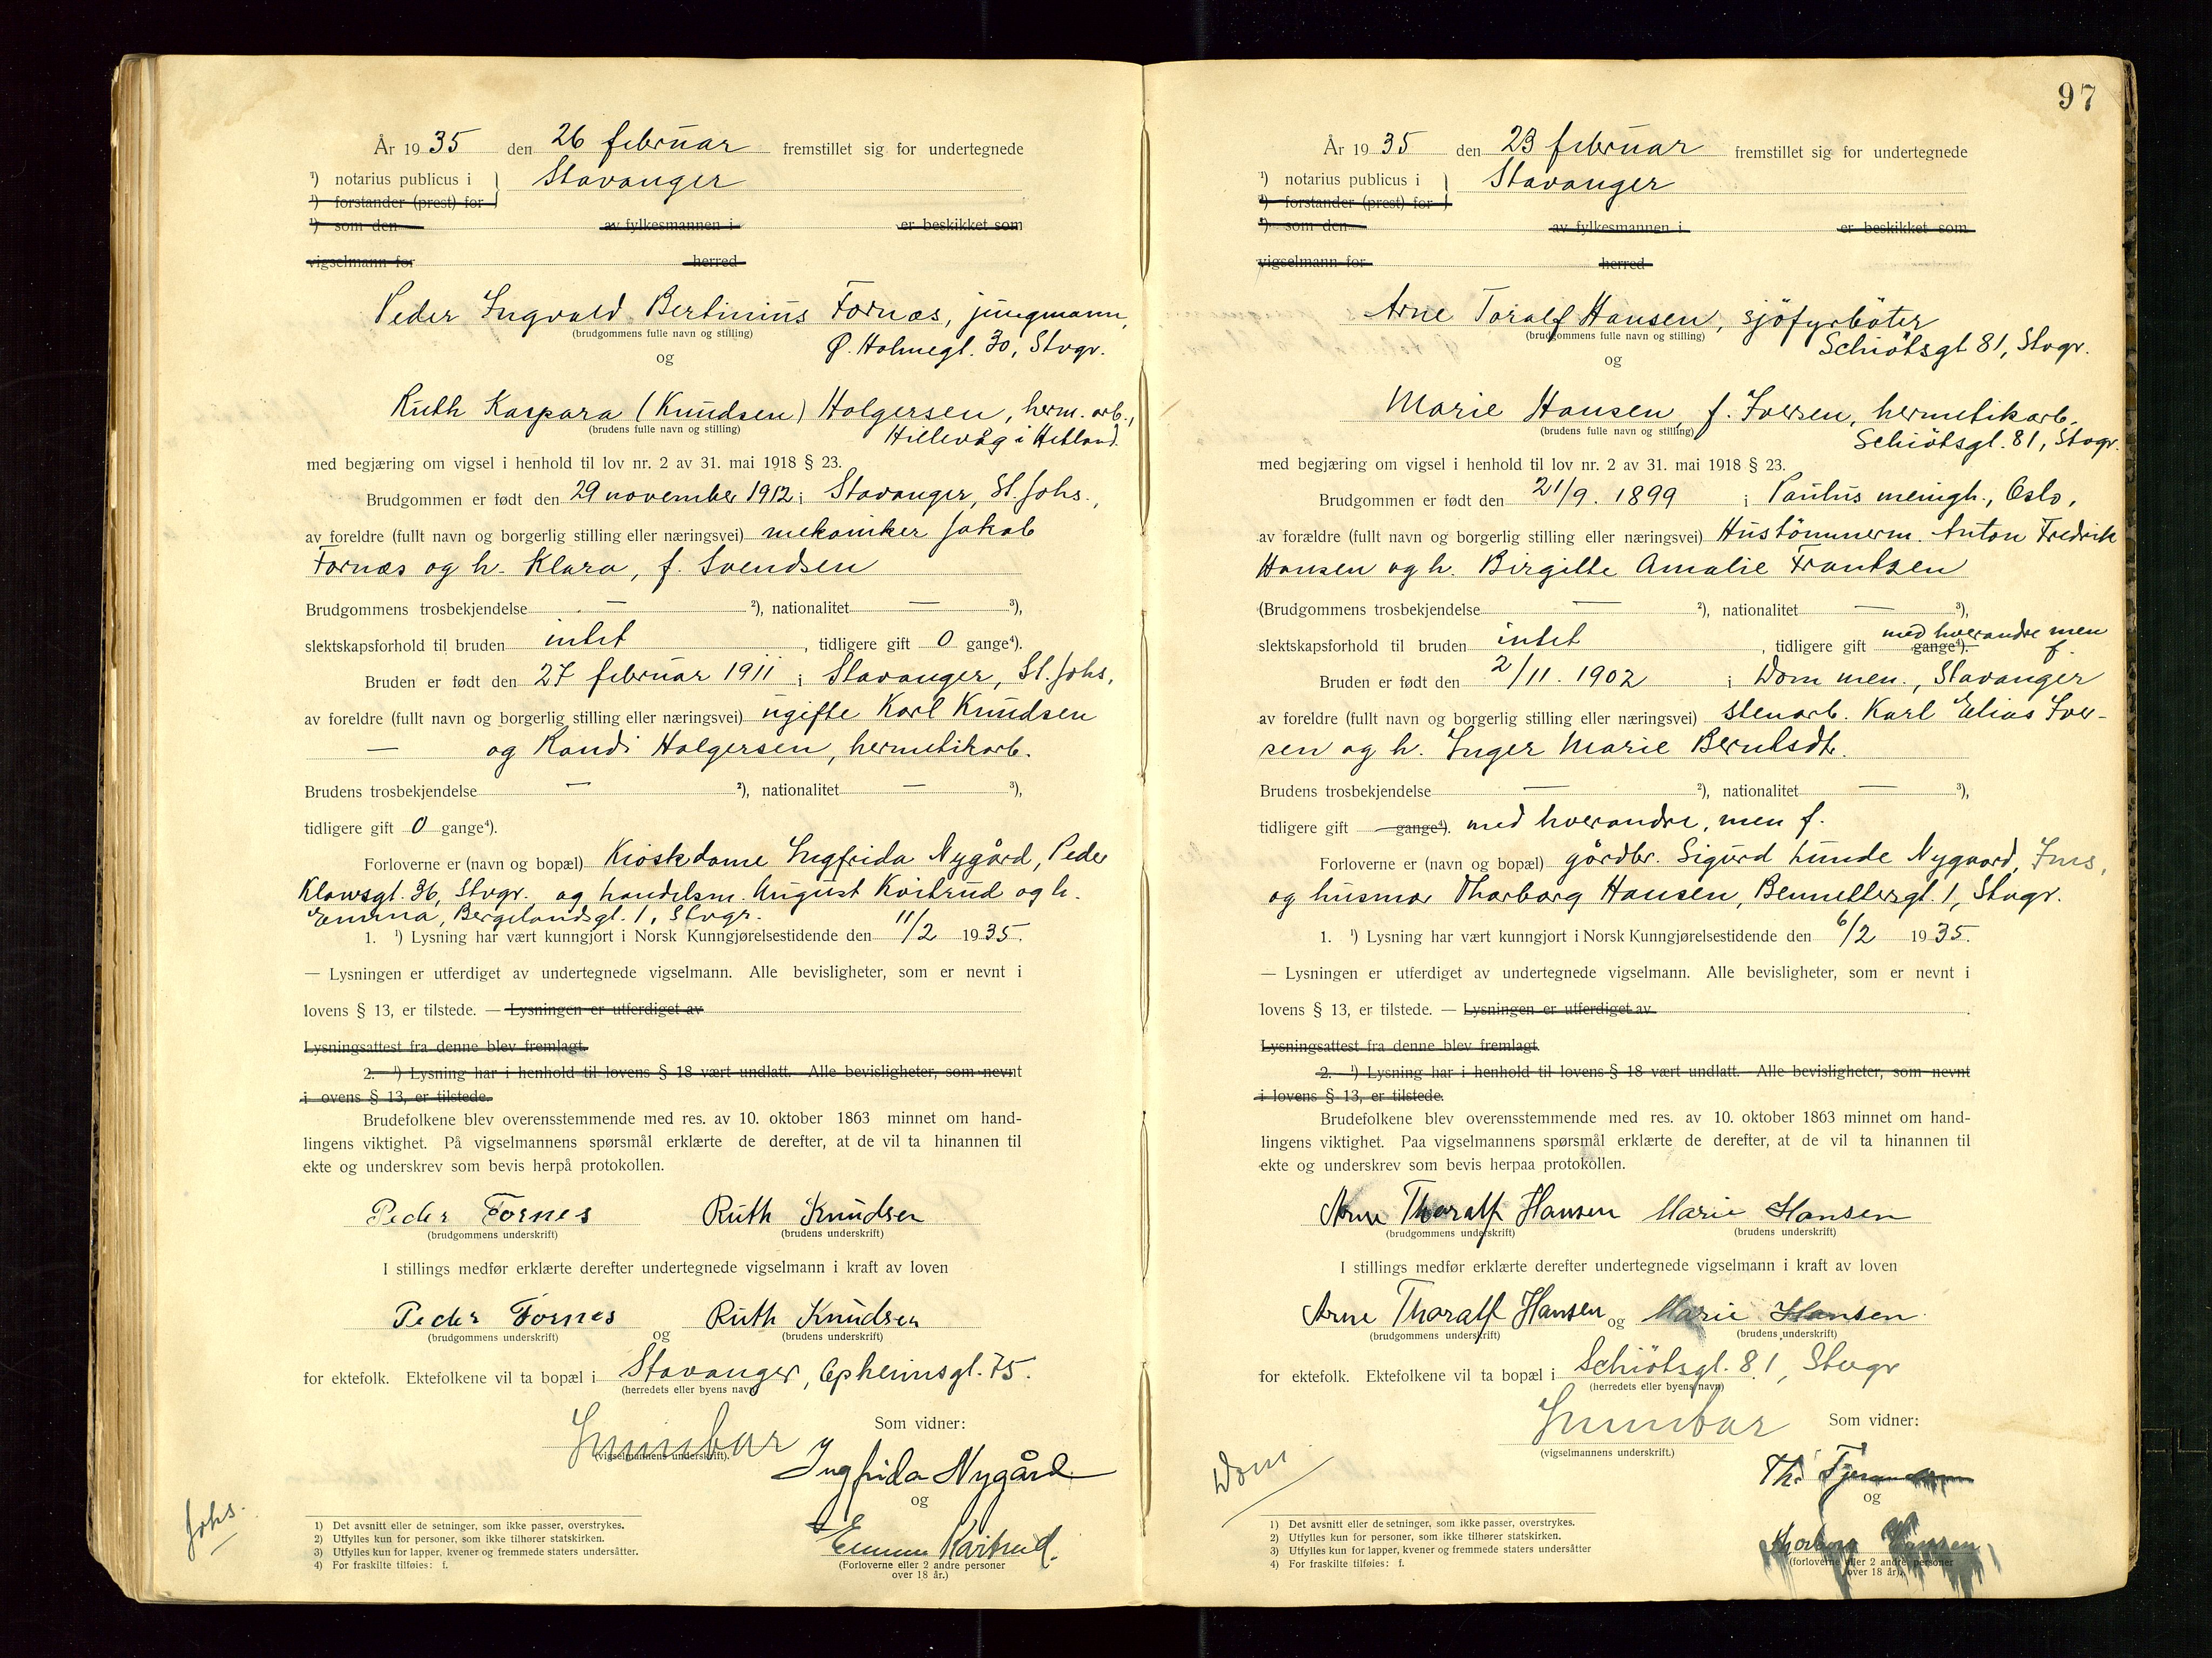 År 1935 den 26 februar fremstillet sig for undertegnede
¹) notarius publicus i } Stavanger
¹) forstander (prest) for
¹) som den av fylkesmannen i er beskikket som
vigselmann for herred
Peder Ingvald Bertinius Fornæs, jungmann,
(brudgommens fulle navn og stilling)
Ø. Holmegt. 30, Stvgr.
og
Ruth Kaspara (Knudsen) Holgersen, herm. arb.,
(brudens fulle navn og stilling)
Hillevåg i Hetland.
med begjæring om vigsel i henhold til lov nr. 2 av 31. mai 1918 § 23.
Brudgommen er født den 29 november 1912 i Stavanger, St. Johs.,
av foreldre (fullt navn og borgerlig stilling eller næringsvei) mekaniker Jakob
Fornæs og h. Klara, f. Svendsen
Brudgommens trosbekjendelse — ²), nationalitet — ³),
slektskapsforhold til bruden intet, tidligere gift 0 gange⁴).
Bruden er født den 27 februar 1911 i Stavanger, St. Johs,
av foreldre (fullt navn og borgerlig stilling eller næringsvei) ugifte Karl Knudsen
— og Randi Holgersen, hermetikarb.
Brudens trosbekjendelse — ²), nationalitet — ³),
tidligere gift 0 gange⁴).
Forloverne er (navn og bopæl) Kioskdame Ingfrida Nygård, Peder
Klowsgt. 36, Stvgr. og handelsm. August Kvitrud og h.
Emma, Bergelandsgt. 1, Stvgr.
1. ¹) Lysning har vært kunngjort i Norsk Kunngjørelsestidende den 11/2 1935.
— Lysningen er utferdiget av undertegnede vigselmann. Alle bevisligheter, som er nevnt i
lovens § 13, er tilstede. — Lysningen er utferdiget av
Lysningsattest fra denne blev fremlagt.
2. ¹) Lysning har i henhold til lovens § 18 vært undlatt. Alle bevisligheter, som nevnt
i ovens § 13, er tilstede.
Brudefolkene blev overensstemmende med res. av 10. oktober 1863 minnet om hand-
lingens viktighet. På vigselmannens spørsmål erklærte de derefter, at de vil ta hinannen til
ekte og underskrev som bevis herpå protokollen.
Peder Fornes Ruth Knudsen
(brudgommens underskrift) (brudens underskrift)
I stillings medfør erklærte derefter undertegnede vigselmann i kraft av loven
Peder Fornes og Ruth Knudsen
(brudgommens underskrift) (brudens underskrift)
for ektefolk. Ektefolkene vil ta bopæl i Stavanger, Opheimsgt. 75.
(herredets eller byens navn)
Som vidner:
(vigselmannens underskrift).
Ingfrida Nygård
og
Emma Kvitrud.
(Forloverne eller 2 andre personer
over 18 år.)
Johs.
1) Det avsnitt eller de setninger, som ikke passer, overstrykes.
2) Utfylles kun for personer, som ikke tilhører statskirken.
3) Utfylles kun for lapper, kvener og fremmede staters undersåtter.
4) For fraskilte tilføies: f.
97
År 1935 den 23 februar fremstillet sig for undertegnede
¹) notarius publicus i } Stavanger
¹) forstander (prest) for
¹) som den av fylkesmannen i er beskikket som
vigselmann for herred
Arne Toralf Hansen, sjöfyrböter
(brudgommens fulle navn og stilling)
Schiötsgt 81, Stvgr.
og
Marie Hansen f. Iversen, hermetikarb.
(brudens fulle navn og stilling)
Schiötsgt. 81, Stvgr.
med begjæring om vigsel i henhold til lov nr. 2 av 31. mai 1918 § 23.
Brudgommen er født den 21/9. 1899 i Paulus menigh., Oslo,
av forældre (fullt navn og borgerlig stilling eller næringsvei) Hustömmerm. Anton Fredrik
Hansen og h. Birgitte Amalie Frantzen
(Brudgommens trosbekjendelse — ²), nationalitet — ³),
slektskapsforhold til bruden intet, tidligere gift gange⁴). med hverandre men f.
Bruden er født den 2/11. 1902 i Dom men., Stavanger
av foreldre (fullt navn og borgerlig stilling eller næringsvei) stenarb. Karl Elias Iver-
sen og h. Inger Marie Berntsdt.
Brudens trosbekjendelse — ²), nationalitet — ³),
tidligere gift gange⁴). med hverandre, men f.
Forloverne er (navn og bopæl) gårdbr. Sigurd Lunde Nygaard, Ims,
og husmor Thorborg Hansen, Bennettersgt. 1, Stvgr.
1. ¹) Lysning har vært kunngjort i Norsk Kunngjørelsestidende den 6/2 1935.
— Lysningen er utferdiget av undertegnede vigselmann. Alle bevisligheter, som er nevnt i
lovens § 13, er tilstede. — Lysningen er utferdiget av
Lysningsattest fra denne blev fremlagt.
2. ¹) Lysning har i henhold til lovens § 18 vært undlatt. Alle bevisligheter, som nevnt
i lovens § 13, er tilstede.
Brudefolkene blev overensstemmende med res. av 10. oktober 1863 minnet om hand-
lingens viktighet. Paa vigselmannens spørsmål erklærte de derefter, at de vil ta hinannen til
ekte og underskrev som bevis herpaa protokollen.
Arne Thoralf Hansen Marie Hansen
(brudgommens underskrift) (brudens underskrift)
I stillings medfør erklærte derefter undertegnede vigselmann i kraft av loven
Arne Thoralf Hansen og Marie Hansen
(brudgommens underskrift) (brudens underskrift)
for ektefolk. Ektefolkene vil ta bopæl i Schiötsgt. 81, Stvgr
(herredets eller byens navn)
Som vidner:
(vigselmannens underskrift.)
Dom
Th.
og
Thorborg Hansen
(forloverne eller 2 andre personer
over 18 år).
1) Det avsnitt eller de setninger, som ikke passer, overstrykes.
2) Utfylles kun for personer, som ikke tilhører statskirken.
3) Utfylles kun for lapper, kvener og fremmede staters undersåtter
4) For fraskilte tilføies: f.